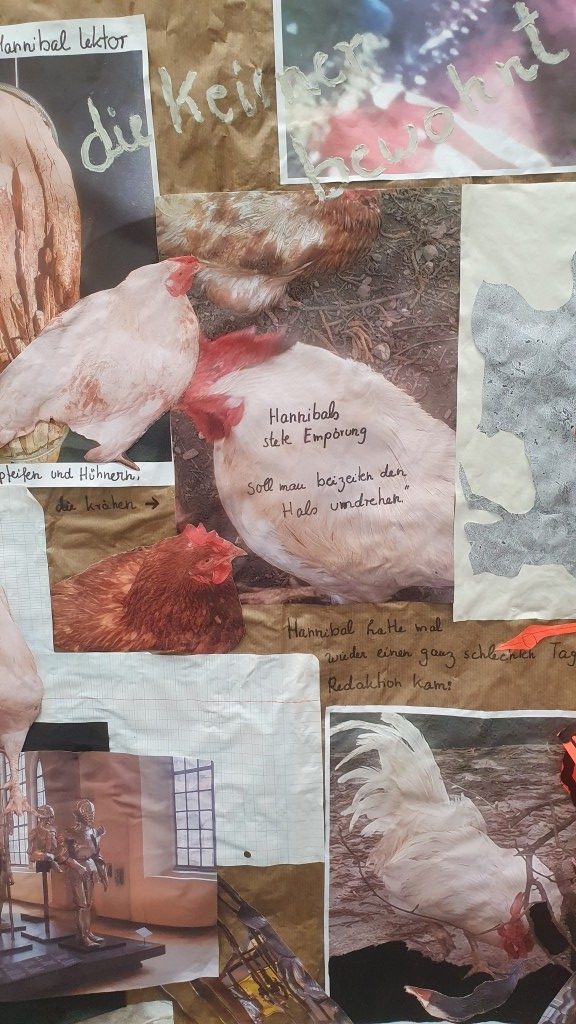 Hannibal Lektor
die Keiner
bewohnt
Hannibals
stete Empörung
soll man beizeiten den
Hals umdrehen."
pfeifen und Hühnern,
die krähen →
Hannibal hatte mal
wieder einen ganz schlechten Tag
Redaktion kam: